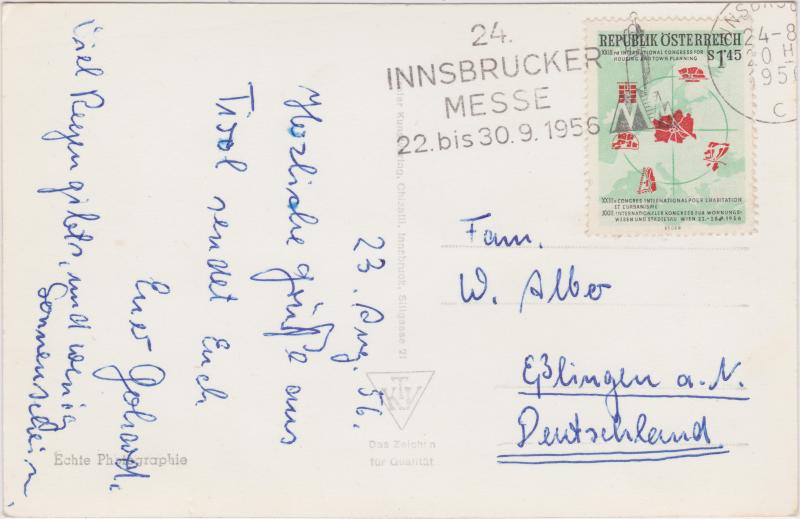 23. Aug. 56.
Herzliche Grüße aus
Tirol sendet Euch
Euer
Viel Regen gibts, und wenig
Sonnenschein.
Echte Photographie
Kunstverlag, Chizzali, Innsbruck, Sillgasse 21
Das Zeichen
für Qualität
24.
INNSBRUCKER
MESSE
22. bis 30.9.1956
INNSBRUCK
24-8
20 H
1956
C
REPUBLIK ÖSTERREICH
XXIIIRD INTERNATIONAL CONGRESS FOR
HOUSING AND TOWN PLANNING
S 1·45
XXIIIe CONGRES INTERNATIONAL POUR L'HABITATION
ET L'URBANISME
XXIII. INTERNATIONALER KONGRESS FÜR WOHNUNGS-
WESEN UND STÄDTEBAU WIEN 22.-28.7.1956
Fam.
W. Alber
Eßlingen a. N.
Deutschland.